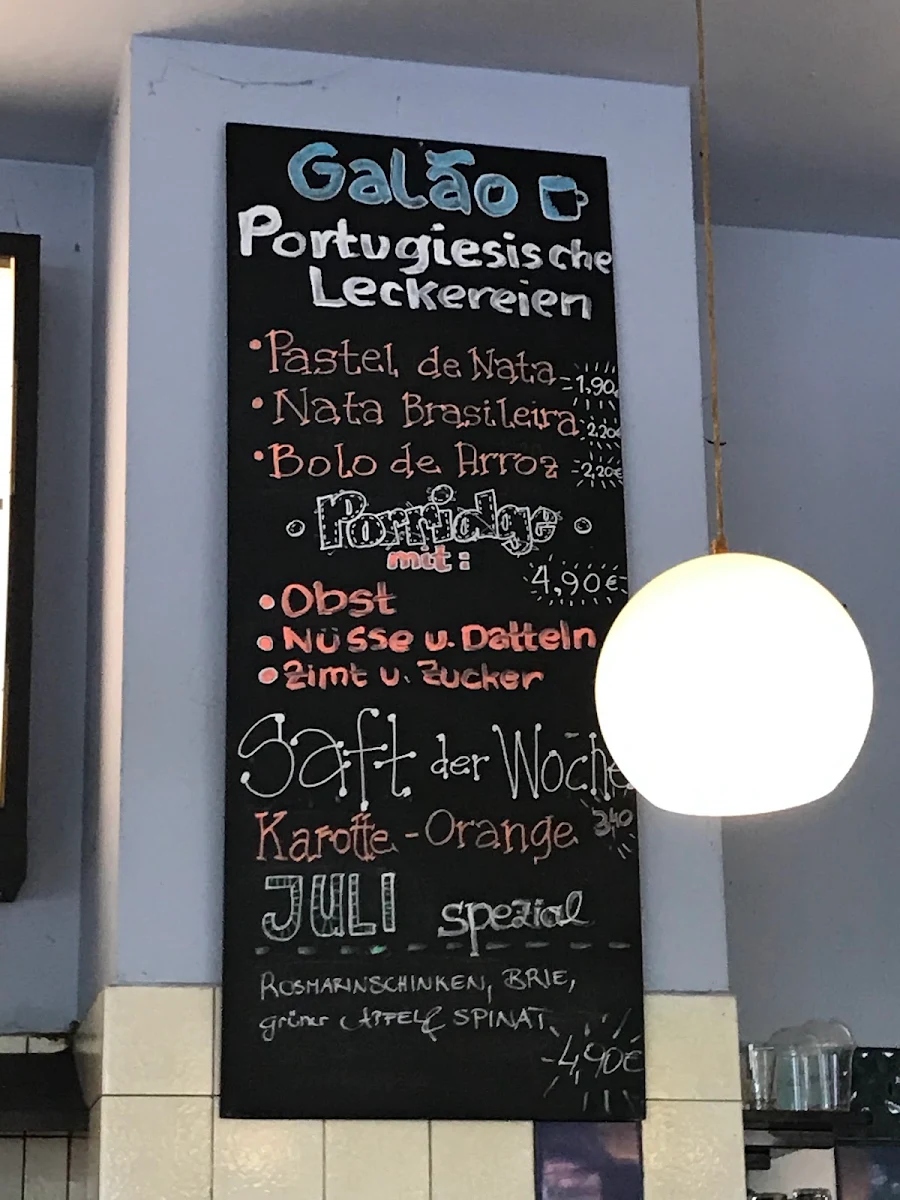 Galão
Portugiesische
Leckereien
•Pastel de Nata -1,90€
•Nata Brasileira -2,20€
•Bolo de Arroz -2,20€
Porridge
mit:
4,90€-
•Obst
•Nüsse u. Datteln
•Zimt u. Zucker
Saft der Woche
Karotte-Orange 3,40
JULI spezial
ROSMARINSCHINKEN, BRIE,
grüner APFEL & SPINAT.
-4,90€